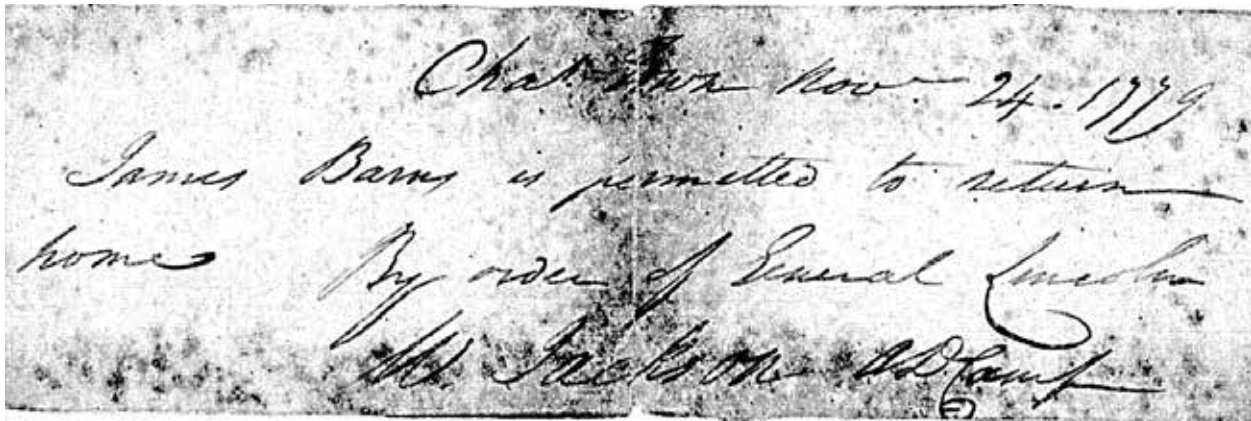 Chas town Nov. 24. 1779
James Barns is permitted to return
home By order of General Lincoln
W. Jackson ADCamp